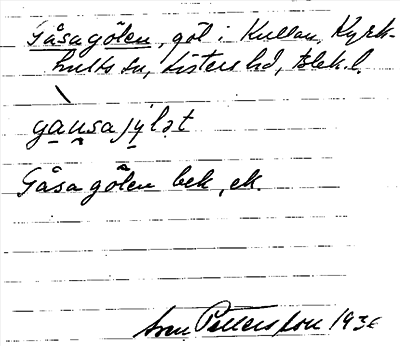 Gåsagölen, göl i Kullan, Kyrk-
hults sn, Listers hd, Blek. l.
gausajylət
Gåsagölen bek, ek.
Sven Pettersson 1936